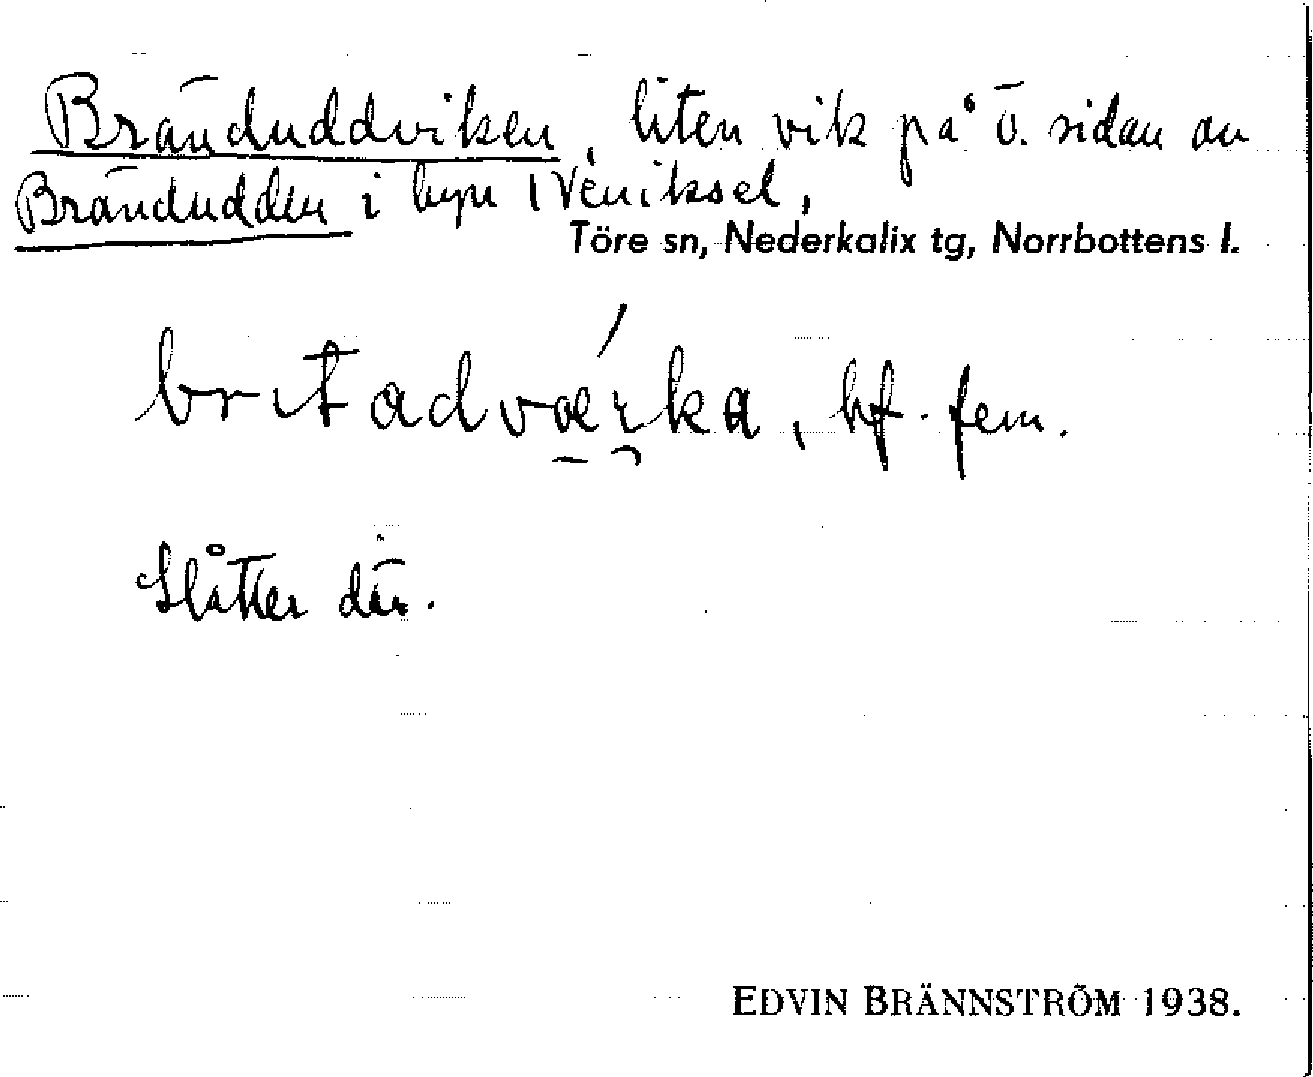 Bränduddviken, liten vik på ö. sidan av
Brändudden i byn
Töre sn, Nederkalix tg, Norrbottens l.
bf. fem.
Slåtter där.
EDVIN BRÄNNSTRÖM 1938.